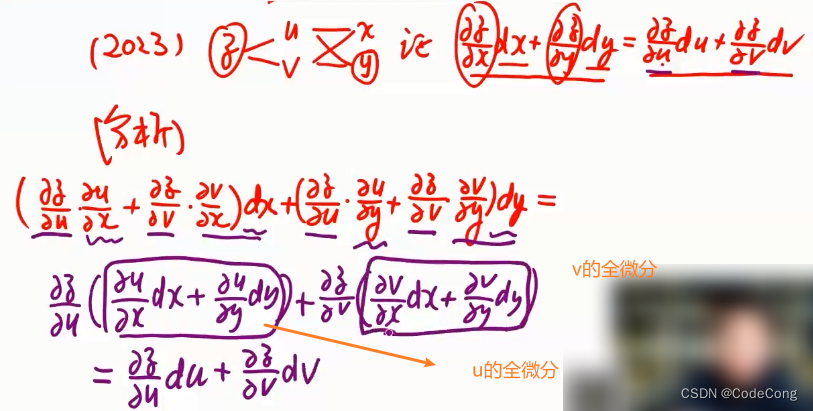 (2023) z < u v x y 证 ∂z/∂x dx + ∂z/∂y dy = ∂z/∂u du + ∂z/∂v dv
[分析]
(∂z/∂u · ∂u/∂x + ∂z/∂v · ∂v/∂x)dx + (∂z/∂u · ∂u/∂y + ∂z/∂v · ∂v/∂y)dy =
v的全微分
∂z/∂u (∂u/∂x dx + ∂u/∂y dy) + ∂z/∂v (∂v/∂x dx + ∂v/∂y dy)
u的全微分
= ∂z/∂u du + ∂z/∂v dv
CSDN @CodeCong